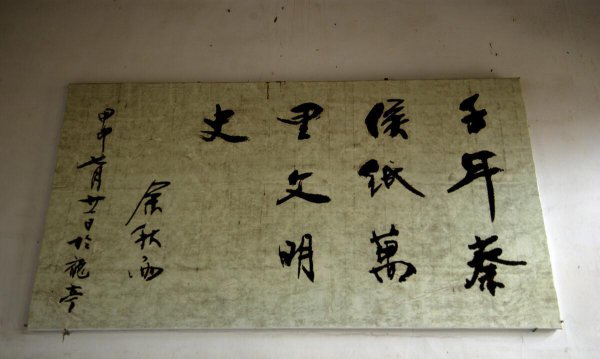 千年蔡
侯纸萬
里文明
史
余秋雨
甲申七月廿一日於龍亭